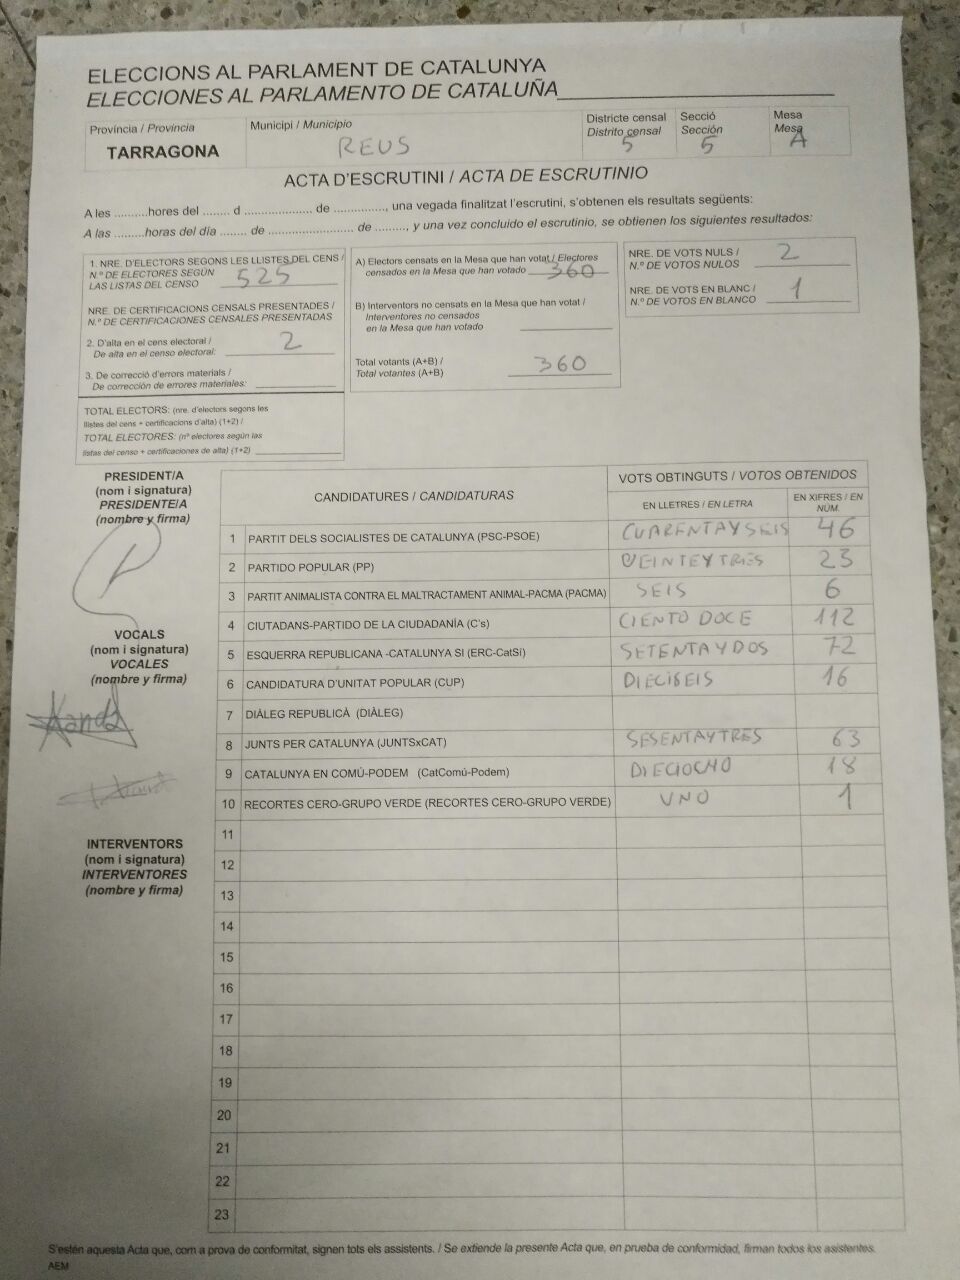 ELECCIONS AL PARLAMENT DE CATALUNYA
ELECCIONES AL PARLAMENTO DE CATALUÑA
Província / Provincia
TARRAGONA
Municipi / Municipio
REUS
Districte censal
Distrito censal
5
Secció
Sección
5
Mesa
Mesa
A
ACTA D'ESCRUTINI / ACTA DE ESCRUTINIO
A les ..........hores del ........ d ..................... de ..............., una vegada finalitzat l'escrutini, s'obtenen els resultats següents:
A las ..........horas del día ........ de ........................... de ........., y una vez concluido el escrutinio, se obtienen los siguientes resultados:
1. NRE. D'ELECTORS SEGONS LES LLISTES DEL CENS /
N.º DE ELECTORES SEGÚN
LAS LISTAS DEL CENSO 525
NRE. DE CERTIFICACIONS CENSALS PRESENTADES /
N.º DE CERTIFICACIONES CENSALES PRESENTADAS
2. D'alta en el cens electoral /
De alta en el censo electoral: 2
3. De correcció d'errors materials /
De corrección de errores materiales:
TOTAL ELECTORS: (nre. d'electors segons les
llistes del cens + certificacions d'alta) (1+2) /
TOTAL ELECTORES: (nº electores según las
listas del censo + certificaciones de alta) (1+2)
A) Electors censats en la Mesa que han votat / Electores
censados en la Mesa que han votado 360
B) Interventors no censats en la Mesa que han votat /
Interventores no censados
en la Mesa que han votado
Total votants (A+B) /
Total votantes (A+B) 360
NRE. DE VOTS NULS /
N.º DE VOTOS NULOS 2
NRE. DE VOTS EN BLANC /
N.º DE VOTOS EN BLANCO 1
PRESIDENT/A
(nom i signatura)
PRESIDENTE/A
(nombre y firma)
VOCALS
(nom i signatura)
VOCALES
(nombre y firma)
INTERVENTORS
(nom i signatura)
INTERVENTORES
(nombre y firma)
CANDIDATURES / CANDIDATURAS
VOTS OBTINGUTS / VOTOS OBTENIDOS
EN LLETRES / EN LETRA
EN XIFRES / EN NÚM.
1 PARTIT DELS SOCIALISTES DE CATALUNYA (PSC-PSOE) CUARENTA Y SEIS 46
2 PARTIDO POPULAR (PP) VEINTE Y TRES 23
3 PARTIT ANIMALISTA CONTRA EL MALTRACTAMENT ANIMAL-PACMA (PACMA) SEIS 6
4 CIUTADANS-PARTIDO DE LA CIUDADANÍA (C's) CIENTO DOCE 112
5 ESQUERRA REPUBLICANA -CATALUNYA SÍ (ERC-CatSí) SETENTA Y DOS 72
6 CANDIDATURA D'UNITAT POPULAR (CUP) DIECISEIS 16
7 DIÀLEG REPUBLICÀ (DIÀLEG)
8 JUNTS PER CATALUNYA (JUNTSxCAT) SESENTA Y TRES 63
9 CATALUNYA EN COMÚ-PODEM (CatComú-Podem) DIECIOCHO 18
10 RECORTES CERO-GRUPO VERDE (RECORTES CERO-GRUPO VERDE) UNO 1
11
12
13
14
15
16
17
18
19
20
21
22
23
S'estén aquesta Acta que, com a prova de conformitat, signen tots els assistents. / Se extiende la presente Acta que, en prueba de conformidad, firman todos los asistentes.
AEM